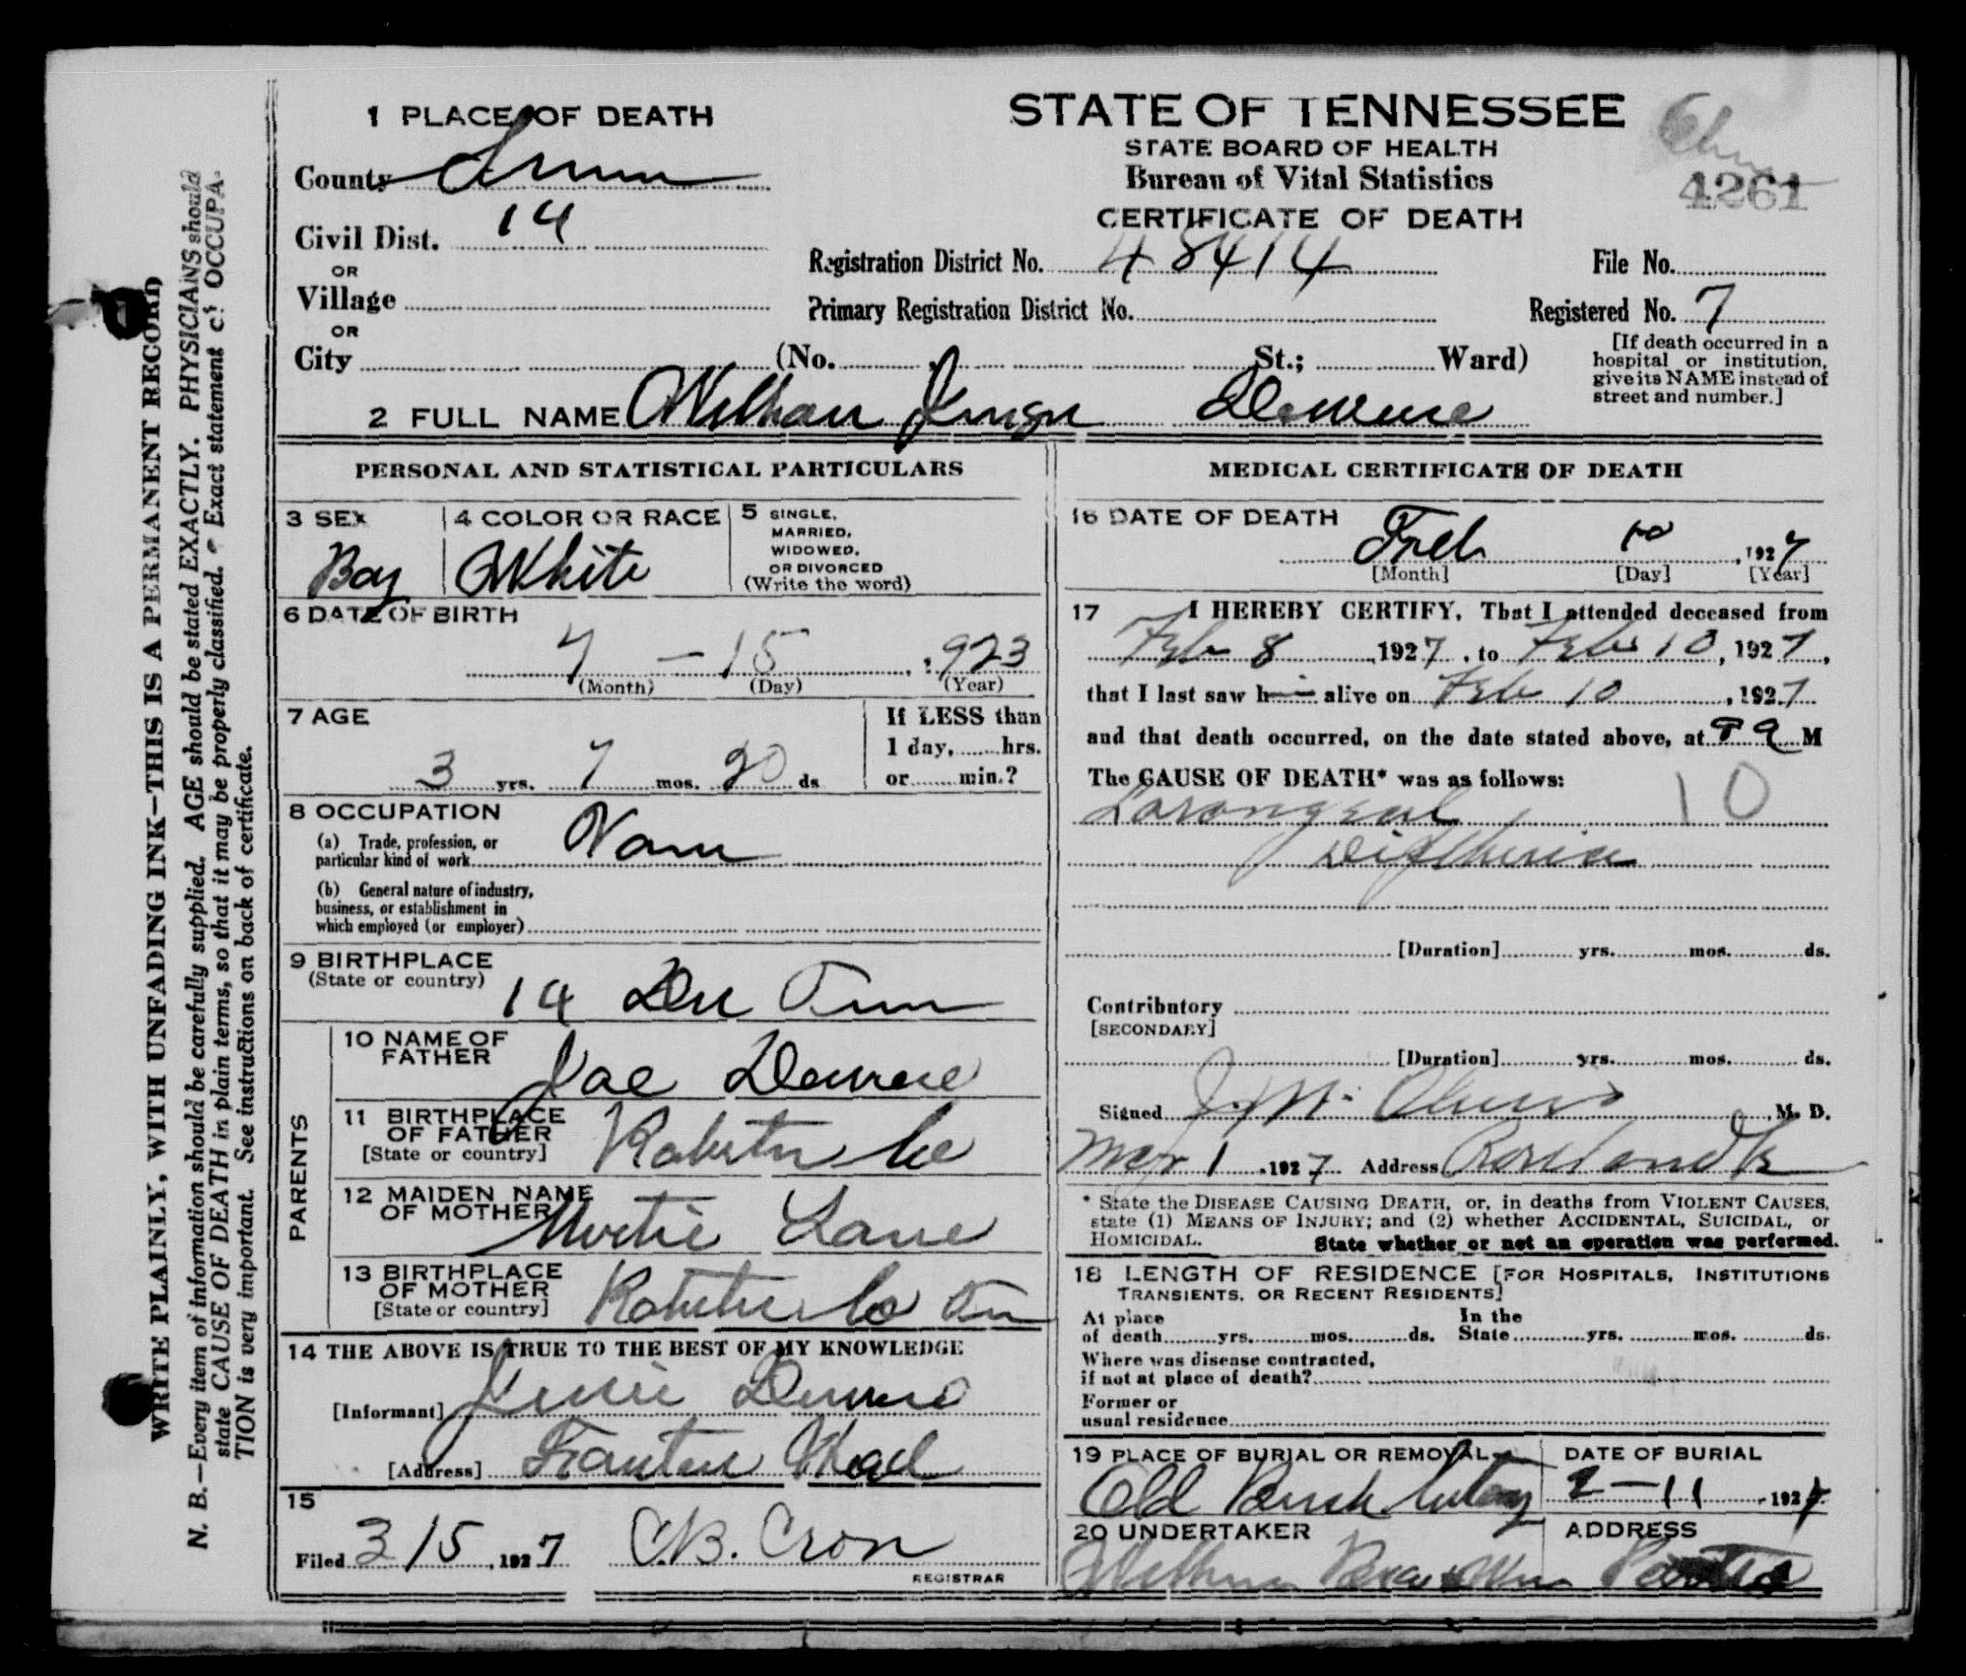 1 PLACE OF DEATH
County
Civil Dist. 14
OR
Village
OR
City (No. St.; Ward)
STATE OF TENNESSEE
STATE BOARD OF HEALTH
Bureau of Vital Statistics
CERTIFICATE OF DEATH
4261
Registration District No. 48414
File No.
Primary Registration District No.
Registered No. 7
[If death occurred in a
hospital or institution,
give its NAME instead of
street and number.]
2 FULL NAME
WRITE PLAINLY, WITH UNFADING INK—THIS IS A PERMANENT RECORD
N. B.—Every item of information should be carefully supplied. AGE should be stated EXACTLY. PHYSICIANS should
state CAUSE OF DEATH in plain terms, so that it may be properly classified. Exact statement of OCCUPA-
TION is very important. See instructions on back of certificate.
PERSONAL AND STATISTICAL PARTICULARS
3 SEX
Boy
4 COLOR OR RACE
White
5 SINGLE,
MARRIED,
WIDOWED,
OR DIVORCED
(Write the word)
6 DATE OF BIRTH
7 — 15, 1923
(Month) (Day) (Year)
7 AGE
3 yrs. 7 mos. 20 ds
If LESS than
1 day, hrs.
or min.?
8 OCCUPATION
(a) Trade, profession, or
particular kind of work
(b) General nature of industry,
business, or establishment in
which employed (or employer)
9 BIRTHPLACE
(State or country)
14
PARENTS
10 NAME OF
FATHER
11 BIRTHPLACE
OF FATHER
[State or country]
12 MAIDEN NAME
OF MOTHER
Mirtie Lane
13 BIRTHPLACE
OF MOTHER
[State or country]
14 THE ABOVE IS TRUE TO THE BEST OF MY KNOWLEDGE
[Informant]
[Address]
15
Filed 3/5, 1927 C.B. Cron
REGISTRAR
MEDICAL CERTIFICATE OF DEATH
16 DATE OF DEATH
Feb 10, 1927
[Month] [Day] [Year]
17 I HEREBY CERTIFY, That I attended deceased from
Feb 8, 1927, to Feb 10, 1927,
that I last saw h alive on Feb 10, 1927
and that death occurred, on the date stated above, at M
The CAUSE OF DEATH* was as follows:
Larongeal 10
Diftheria
[Duration] yrs. mos. ds.
Contributory
[SECONDARY]
[Duration] yrs. mos. ds.
Signed M. D.
Mar 1, 1927 Address
* State the DISEASE CAUSING DEATH, or, in deaths from VIOLENT CAUSES,
state (1) MEANS OF INJURY; and (2) whether ACCIDENTAL, SUICIDAL, or
HOMICIDAL. State whether or not an operation was performed.
18 LENGTH OF RESIDENCE [FOR HOSPITALS, INSTITUTIONS
TRANSIENTS, OR RECENT RESIDENTS]
At place In the
of death yrs. mos. ds. State yrs. mos. ds.
Where was disease contracted,
if not at place of death?
Former or
usual residence
19 PLACE OF BURIAL OR REMOVAL
Old
DATE OF BURIAL
2—11, 1927
20 UNDERTAKER
ADDRESS